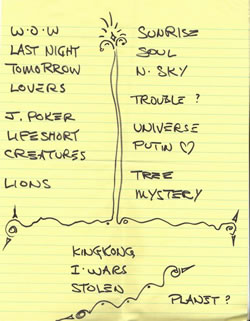 W.O.W
LAST NIGHT
TOMORROW
LOVERS
J. POKER
LIFESHORT
CREATURES
LIONS
SUNRISE
SOUL
N. SKY
TROUBLE ?
UNIVERSE
PUTIN ♡
TREE
MYSTERY
KINGKONG
I. WARS
STOLEN
PLANET ?